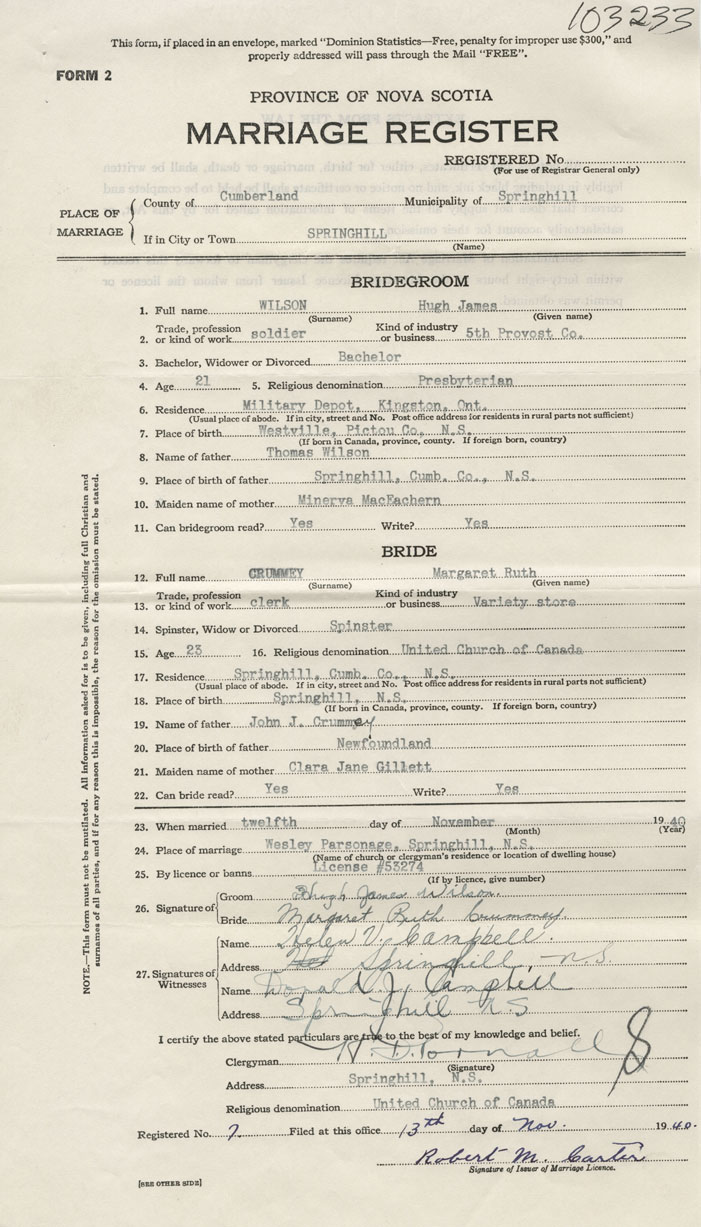 103233
This form, if placed in an envelope, marked "Dominion Statistics—Free, penalty for improper use $300," and
properly addressed will pass through the Mail "FREE".
FORM 2
PROVINCE OF NOVA SCOTIA
MARRIAGE REGISTER
REGISTERED No.
(For use of Registrar General only)
PLACE OF MARRIAGE
County of Cumberland Municipality of Springhill
If in City or Town SPRINGHILL
(Name)
BRIDEGROOM
1. Full name WILSON Hugh James
(Surname) (Given name)
2. Trade, profession or kind of work soldier Kind of industry or business 5th Provost Co.
3. Bachelor, Widower or Divorced Bachelor
4. Age 21 5. Religious denomination Presbyterian
6. Residence Military Depot, Kingston, Ont.
(Usual place of abode. If in city, street and No. Post office address for residents in rural parts not sufficient)
7. Place of birth Westville, Pictou Co., N.S.
(If born in Canada, province, county. If foreign born, country)
8. Name of father Thomas Wilson
9. Place of birth of father Springhill, Cumb. Co., N.S.
10. Maiden name of mother Minerva MacEachern
11. Can bridegroom read? Yes Write? Yes
BRIDE
12. Full name CRUMMEY Margaret Ruth
(Surname) (Given name)
13. Trade, profession or kind of work clerk Kind of industry or business Variety store
14. Spinster, Widow or Divorced Spinster
15. Age 23 16. Religious denomination United Church of Canada
17. Residence Springhill, Cumb. Co., N.S.
(Usual place of abode. If in city, street and No. Post office address for residents in rural parts not sufficient)
18. Place of birth Springhill, N.S.
(If born in Canada, province, county. If foreign born, country)
19. Name of father John J. Crummey
20. Place of birth of father Newfoundland
21. Maiden name of mother Clara Jane Gillett
22. Can bride read? Yes Write? Yes
23. When married twelfth day of November 1940
(Month) (Year)
24. Place of marriage Wesley Parsonage, Springhill, N.S.
(Name of church or clergyman's residence or location of dwelling house)
25. By licence or banns License #53274
(If by licence, give number)
26. Signature of Groom Hugh James Wilson.
Bride Margaret Ruth Crummey.
27. Signatures of Witnesses
Name Helen V. Campbell.
Address Springhill, N.S.
Name Donald J. Campbell
Address Springhill N S
I certify the above stated particulars are true to the best of my knowledge and belief.
Clergyman H. D.
(Signature)
Address Springhill, N.S.
Religious denomination United Church of Canada
Registered No. 7. Filed at this office 13th day of Nov. 1940.
Robert M. Carter
Signature of Issuer of Marriage Licence.
[SEE OTHER SIDE]
NOTE.—This form must not be mutilated. All information asked for is to be given, including full Christian and
surnames of all parties, and if for any reason this is impossible, the reason for the omission must be stated.